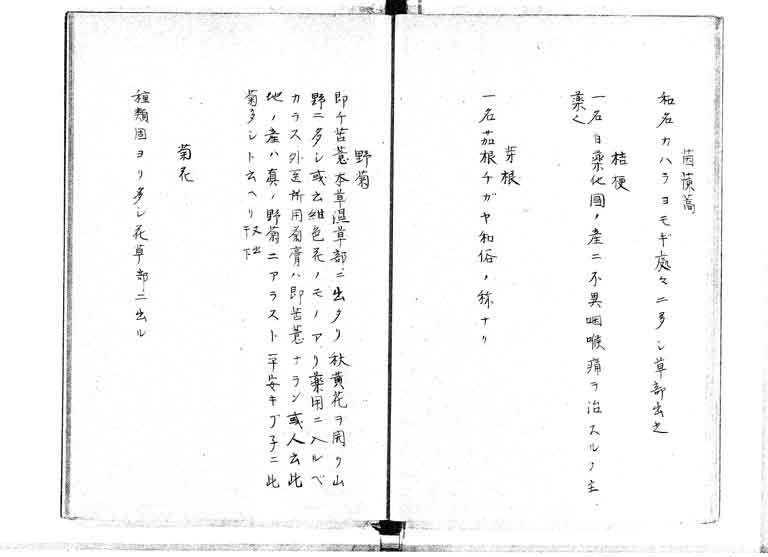 茵蔯蒿
和名カハラヨモギ處々ニ多シ草部出之
桔梗
一名白藥他國ノ産ニ不異咽喉痛ヲ治スルノ主
藥也
茅根
一名茹根チガヤ和俗ノ稱ナリ
野菊
即チ苦薏本草濕草部ニ出タリ秋黄花ヲ開ク山
野ニ多シ或云紺色花ノモノアリ藥用ニ入ルベ
カラス外医所用菊膏ハ即苦薏ナラン或人云此
地ノ産ハ真ノ野菊ニアラスト平安キブ子ニ此
菊多シト云ヘリ
菊花
種類固ヨリ多シ花草部ニ出ル